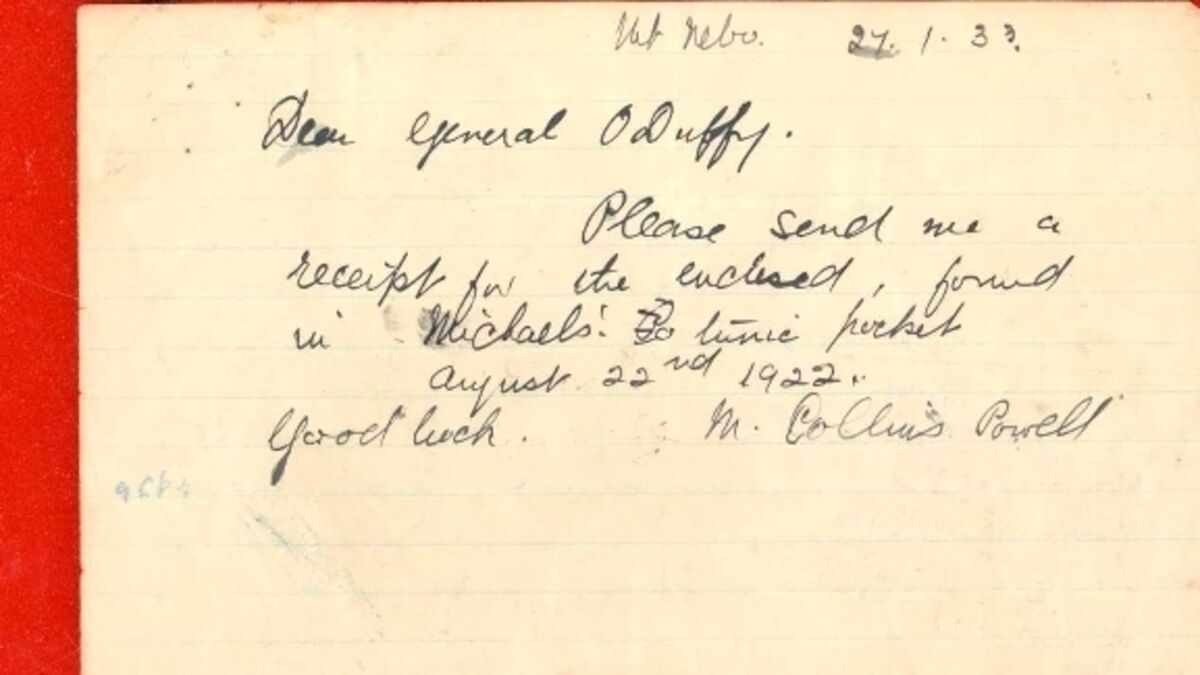 Mt Nebo. 27. 1. 33.
Dear General O Duffy.
Please send me a
receipt for the enclosed, found
in Michaels' tunic pocket
August 22nd 1922.
Good luck. M. Collins Powell